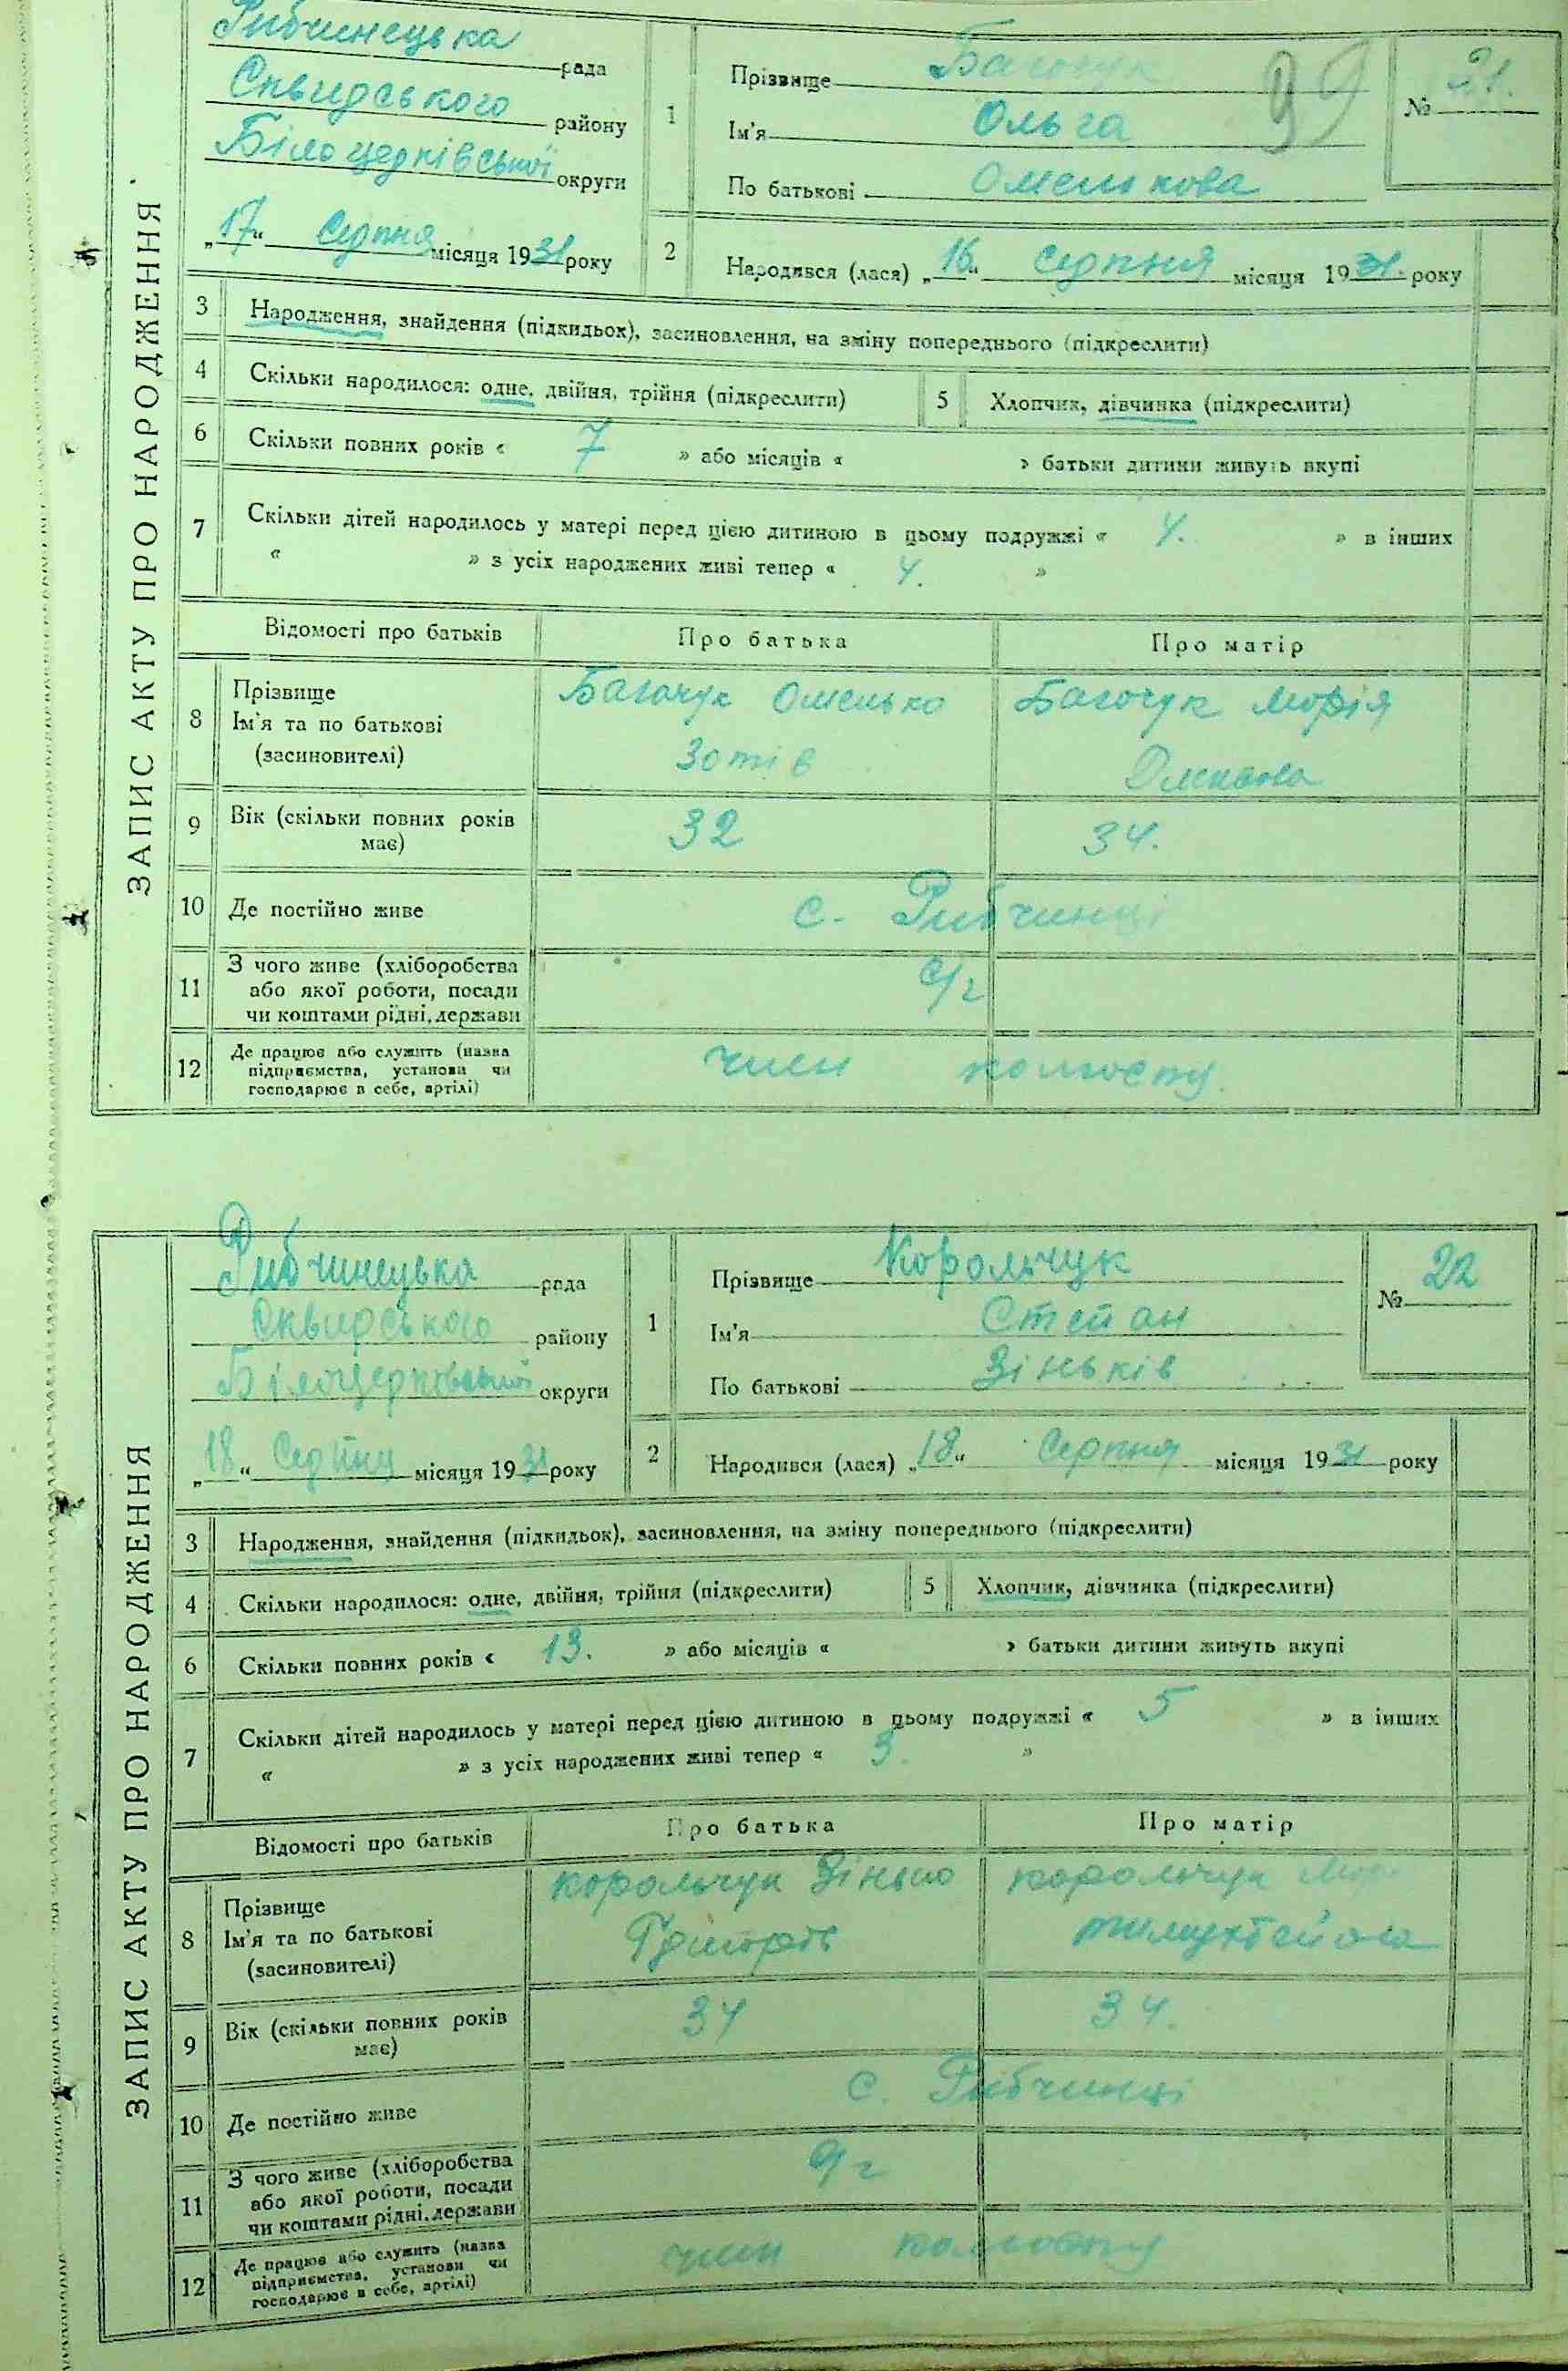 ЗАПИС АКТУ ПРО НАРОДЖЕННЯ
Рибчинецька рада
Сквирського району
Білоцерківської округи
„17“ Серпня місяця 1931 року
1
Прізвище Багачук
Ім'я Ольга
По батькові Омелькова
99
№ 21.
2
Народився (лася) „16“ Серпня місяця 1931. року
3 Народження, знайдення (підкидьок), засиновлення, на зміну попереднього (підкреслити)
4 Скільки народилося: одне, двійня, трійня (підкреслити) 5 Хлопчик, дівчинка (підкреслити)
6 Скільки повних років « 7 » або місяців « » батьки дитини живуть вкупі
7 Скільки дітей народилось у матері перед цією дитиною в цьому подружжі « 4. » в інших
« » з усіх народжених живі тепер « 4. »
Відомості про батьків Про батька Про матір
8 Прізвище
Ім'я та по батькові
(засиновителі)
Багачук Омелько
Зотів
Багачук Морія
9 Вік (скільки повних років
має)
32
34.
10 Де постійно живе с. Рибчинці
11 З чого живе (хліборобства
або якої роботи, посади
чи коштами рідні, держави
с/г
12 Де працює або служить (назва
підприємства, установи чи
господарює в себе, артілі)
член колгоспу.
ЗАПИС АКТУ ПРО НАРОДЖЕННЯ
Рибчинецька рада
Сквирського району
Білоцерківської округи
„18“ місяця 1931 року
1
Прізвище Корольчук
Ім'я Степан
По батькові Зіньків
№ 22
2
Народився (лася) „18“ Серпня місяця 1931 року
3 Народження, знайдення (підкидьок), засиновлення, на зміну попереднього (підкреслити)
4 Скільки народилося: одне, двійня, трійня (підкреслити) 5 Хлопчик, дівчинка (підкреслити)
6 Скільки повних років « 13. » або місяців « » батьки дитини живуть вкупі
7 Скільки дітей народилось у матері перед цією дитиною в цьому подружжі « 5 » в інших
« » з усіх народжених живі тепер « 3. »
Відомості про батьків Про батька Про матір
8 Прізвище
Ім'я та по батькові
(засиновителі)
Корольчук Зінько
Корольчук
9 Вік (скільки повних років
має)
34
34.
10 Де постійно живе с. Рибчинці
11 З чого живе (хліборобства
або якої роботи, посади
чи коштами рідні, держави
с/г
12 Де працює або служить (назва
підприємства, установи чи
господарює в себе, артілі)
член колгоспу